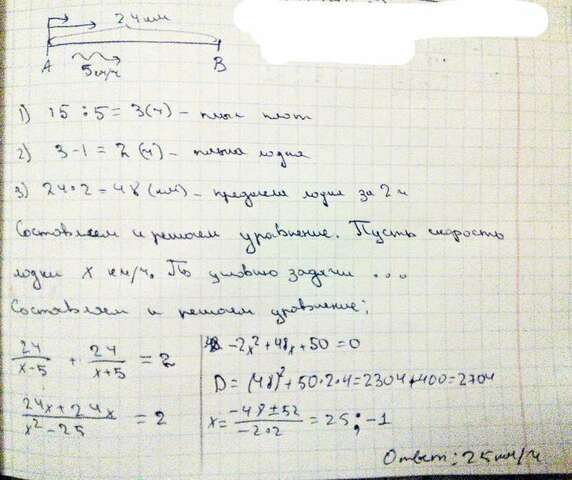 24 км
A 5км/ч B
1) 15 : 5 = 3(ч) – плыл плот
2) 3-1 = 2 (ч) – плыла лодка
3) 24·2=48 (км) – преодолела лодка за 2 ч
Составляем и решаем уравнение. Пусть скорость
лодки x км/ч. По условию задачи ...
Составляем и решаем уравнение:
24/(x-5) + 24/(x+5) = 2
(24x+24x)/(x²-25) = 2
-2x²+48x+50=0
D=(48)²+50·2·4=2304+400=2704
x=(-48±52)/(-2·2)=25; -1
Ответ: 25км/ч